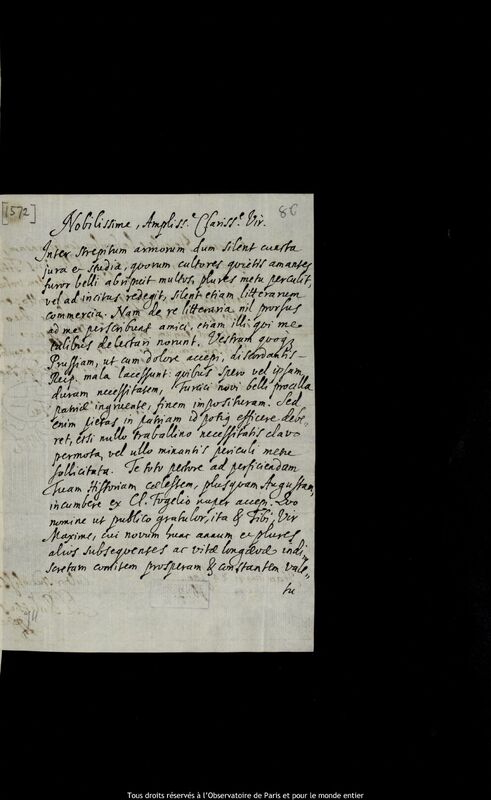 [1572]
86
Nobilissime, Ampliss.e Clariss.e Vir.
Inter strepitum armorum dum silent cuncta
jura et studia, quorum cultores quietis amantes
furor belli abripuit multos, plures metu perculit,
vel ad incitas redegit, silent etiam litterarum
commercia. Nam de re litteraria nil prorsus
ad me perscribunt amici, etiam illi qui me
talibus delectari norunt. Vestram quoq3
Prussiam, ut cum dolore accepi, discordantis
Reip. mala lacessunt: quibus spero vel ipsam
duram necessitatem, Turcici novi belli procella
patriæ ingruente, finem imposituram. Sed
enim pietas in patriam id potiq efficere debe-
ret, etsi nullo trabalino necessitatis clavo
permota, vel ullo minantis periculi metu
sollicitata. Te toto pectore ad perficiendam
Tuam Historiam cœlestem, plusquam Augustam,
incumbere ex Cl. Fogelio nuper accepi. Quo
nomine ut publico gratulor, ita & Tibi, Vir
Maxime, cui novum hunc annum et plures
alios subsequentes ac vitæ longævæ indi-
scretam comitem prosperam & constantem vale-
tu
Tous droits réservés à l'Observatoire de Paris et pour le monde entier